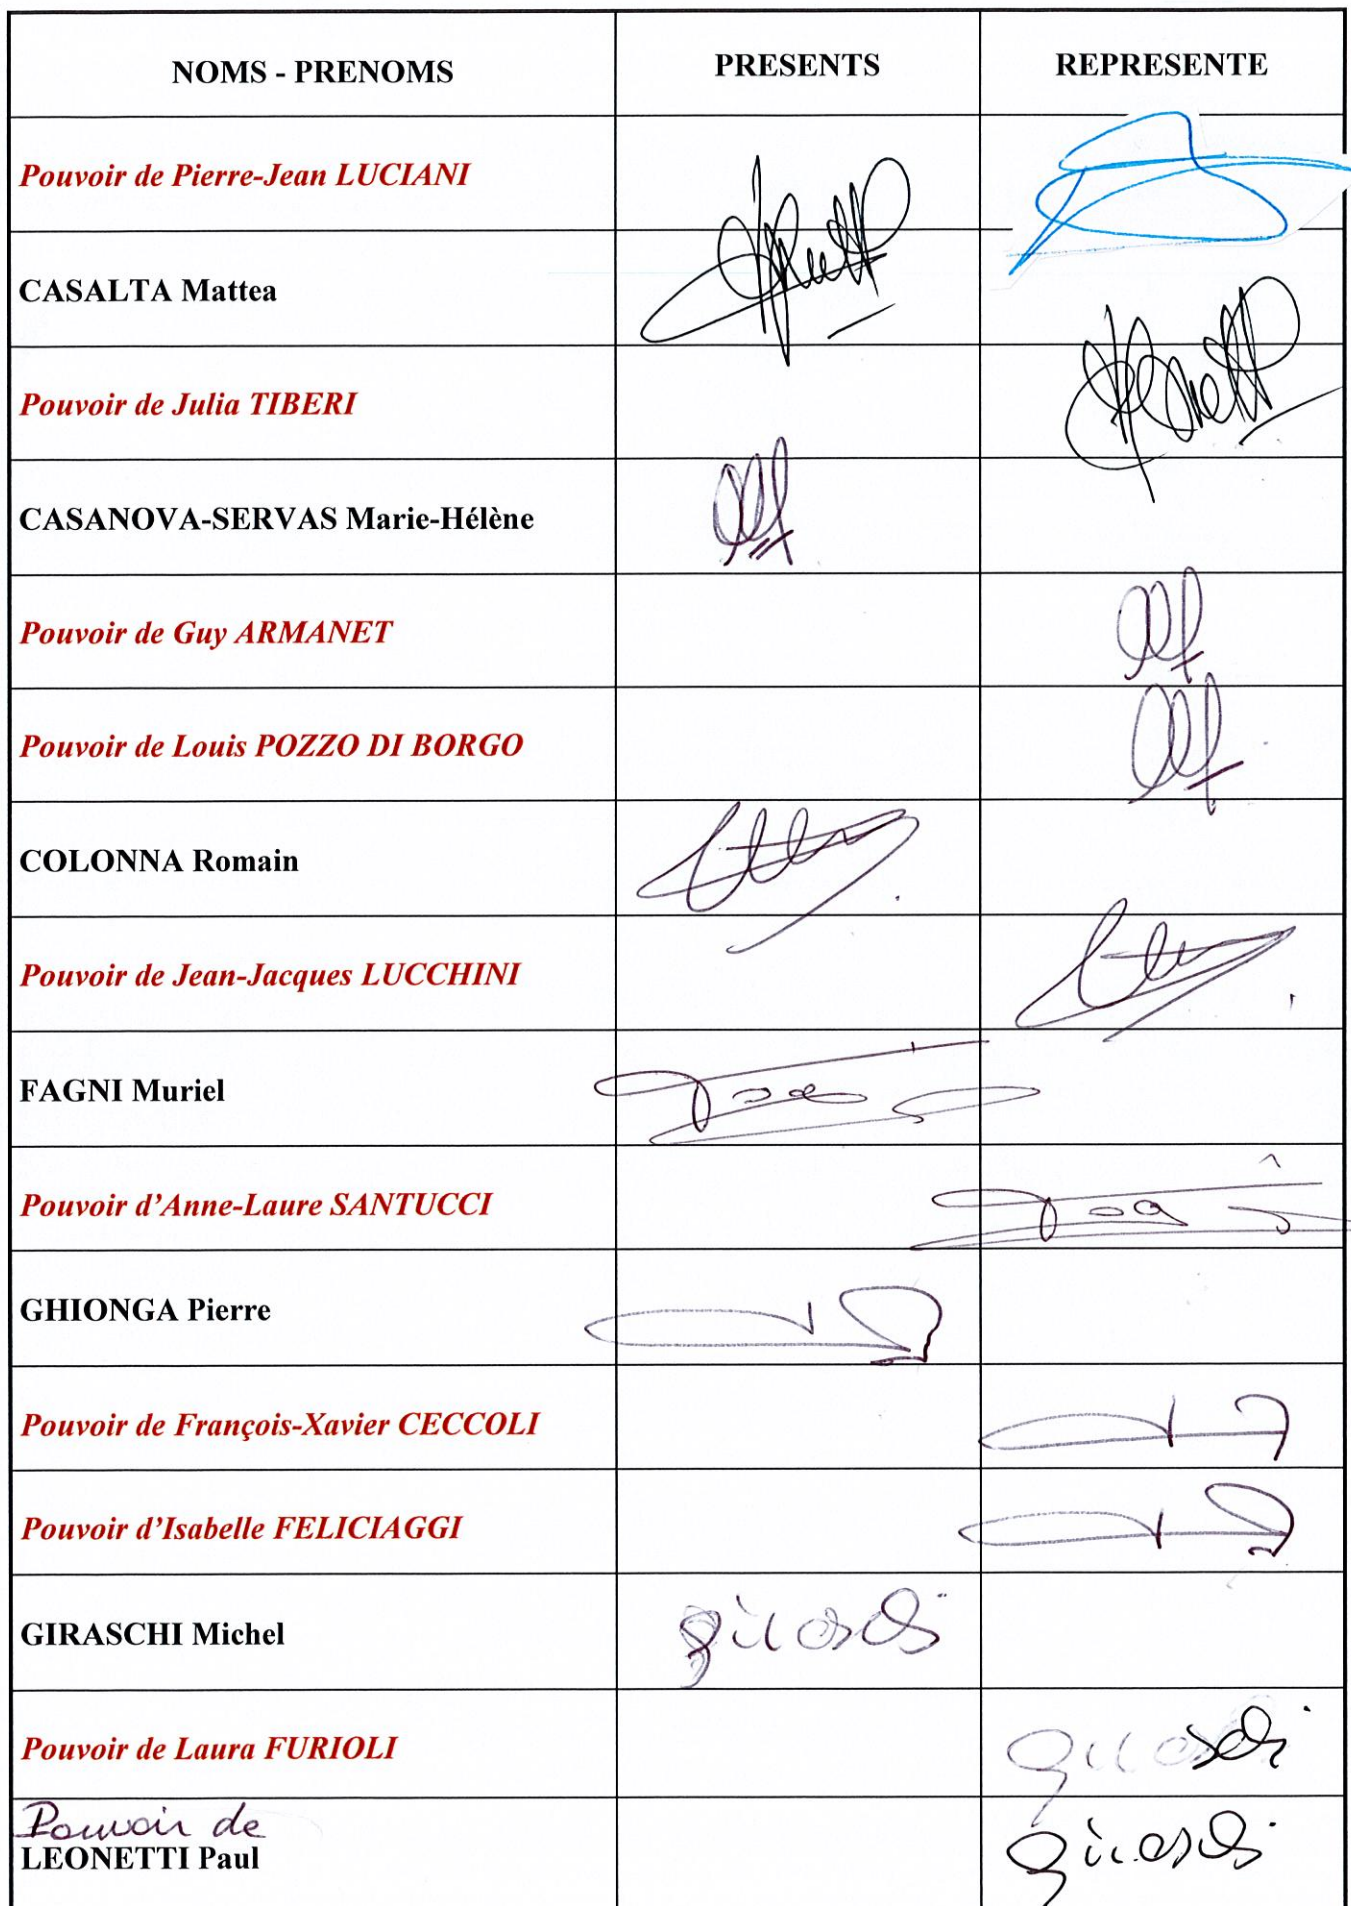 NOMS - PRENOMS PRESENTS REPRESENTE
Pouvoir de Pierre-Jean LUCIANI
CASALTA Mattea
Pouvoir de Julia TIBERI
CASANOVA-SERVAS Marie-Hélène
Pouvoir de Guy ARMANET
Pouvoir de Louis POZZO DI BORGO
COLONNA Romain
Pouvoir de Jean-Jacques LUCCHINI
FAGNI Muriel
Pouvoir d’Anne-Laure SANTUCCI
GHIONGA Pierre
Pouvoir de François-Xavier CECCOLI
Pouvoir d’Isabelle FELICIAGGI
GIRASCHI Michel giraschi
Pouvoir de Laura FURIOLI giraschi
Pouvoir de
LEONETTI Paul giraschi